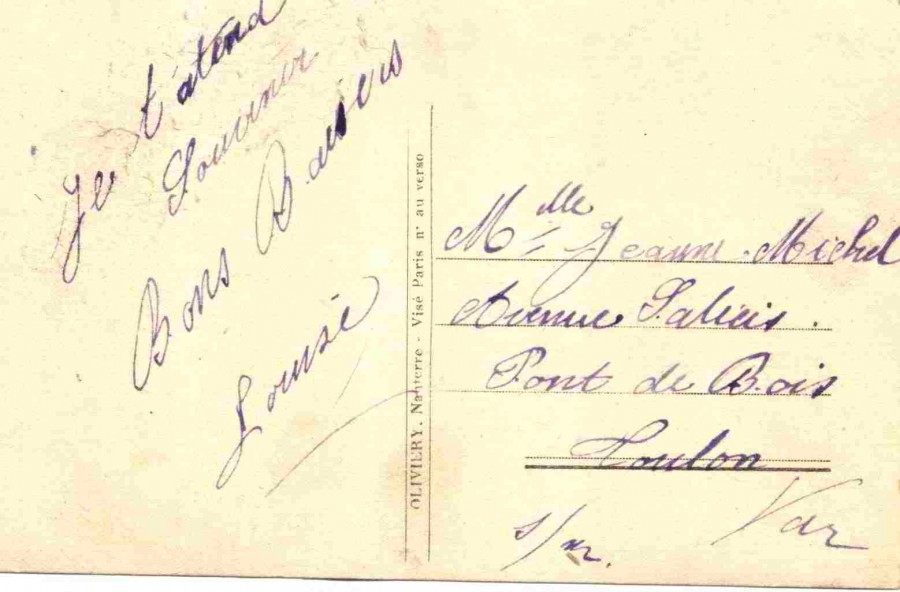 Je t'atend
Souvenir
Bons Baisers
Louisé
OLIVIERY. Nanterre - Visé Paris n° au verso
Mlle Jeanne Michel
Avenue
Pont de Bois
Toulon
Var
s/m.